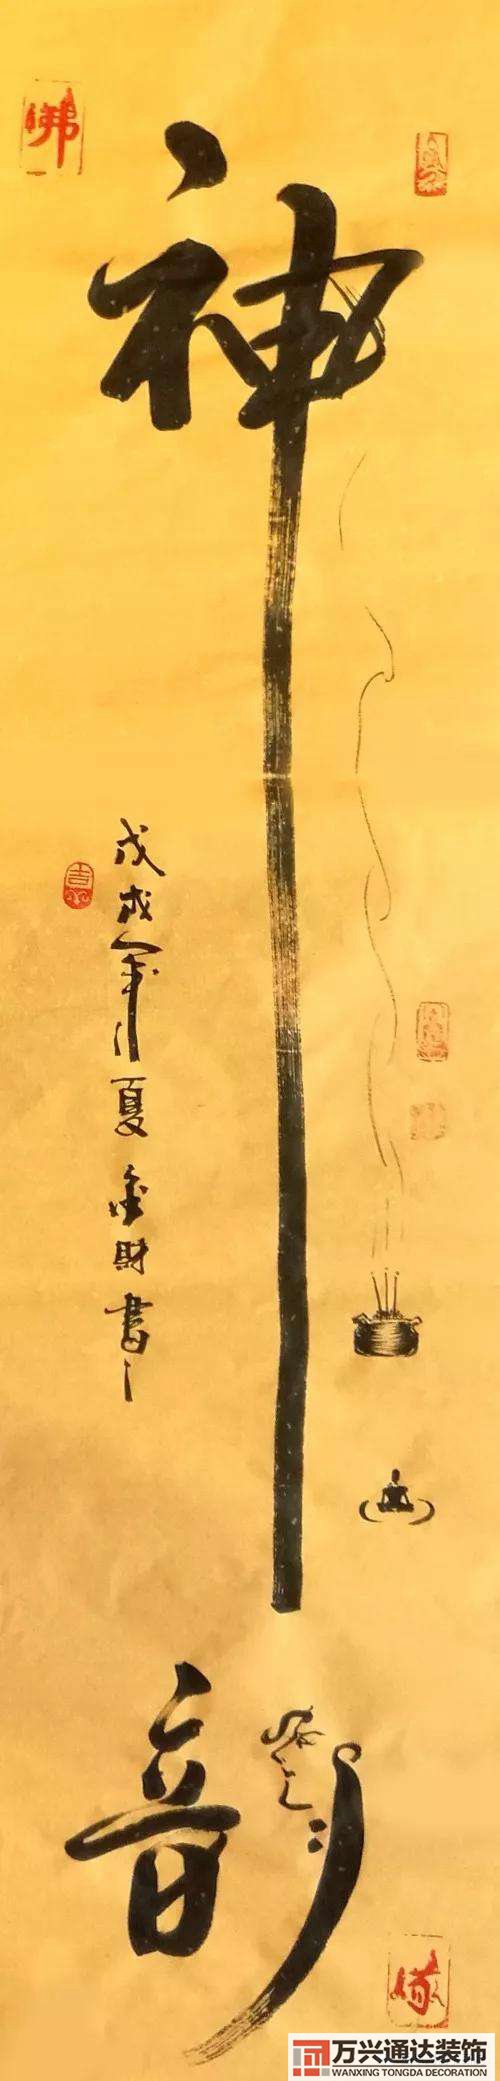 佛
神韵
戊戌年夏金財書
缘
万兴通达装饰
WANXING TONGDA DECORATION